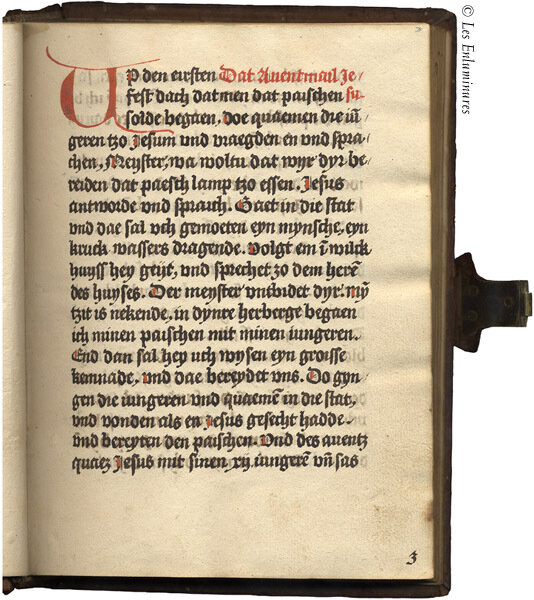 Up den eirsten Dat Auentmail Je/
fest dach dat men dat paischen su
solde begaen, doe quaemen die iū
geren tzo Jesum vnd vraegden en vnd spra
chen, Meyster, wa woltu dat wyr dyr be/
reiden dat paesch lamp tzo essen, Jesus
antworde vnd sprauch. Gaet in die stat
vnd dae sal vch gemoeten eyn mynsche, eyn
kruck wassers dragende. volgt em ī wilck
huyss hey geyt, vnd sprechet zo dem herē
des huyses. Der meyster vntbidet dyr. mȳ
tzit is nekende, in dynre herberge begaen
ich minen paischen mit minen iungeren.
End dan sal hey uch wysen eyn groisse
kemnade, vnd dae bereydet vns. Do gyn
gen die iungeren vnd quaemē in die stat,
vnd vonden als en Jesus gesecht hadde.
vnd bereyten den paischen. Vnd des auentz
quaez Jesus mit sinen xij iungerē vn̄ sas
3
© Les Enluminures